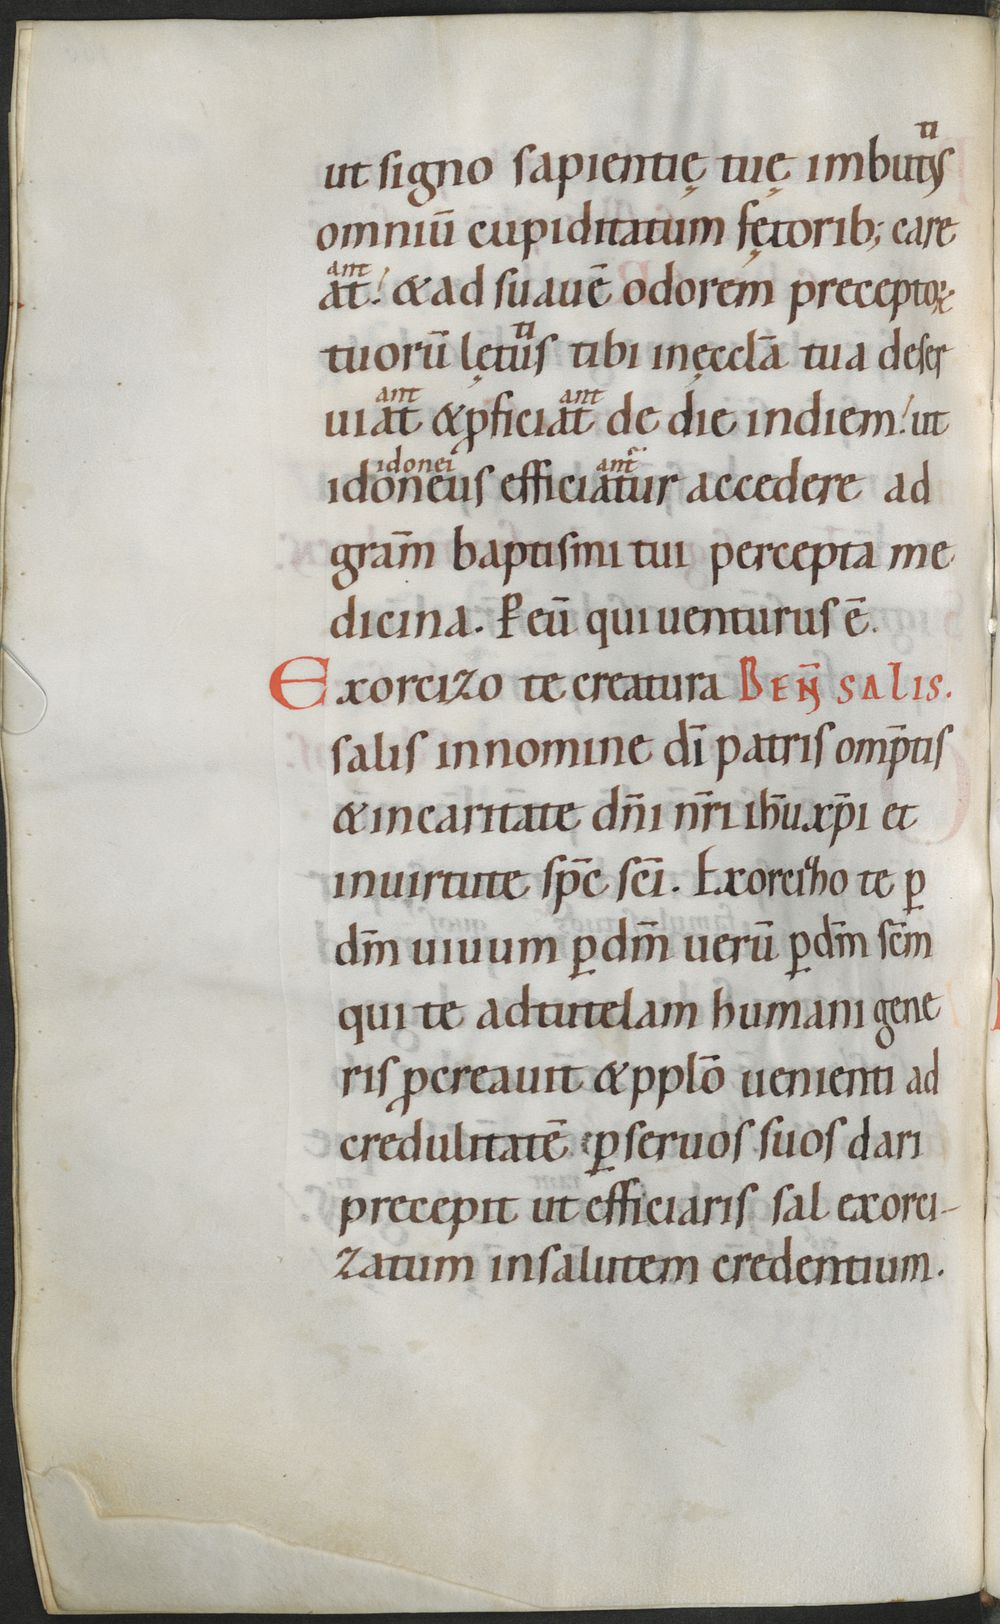 ti
ut signo sapientię tuę imbutus
omniū cupiditatum fętorib; care
ant
at! & ad suauē odorem preceptoꝝ
ti
tuorū lętus tibi in ęccl̄a tua deser
ant ant
uiat & ꝓficiat de die in diem! ut
idonei ant
idoneus efficiatur accedere ad
gram̄ baptismi tui percepta me
dicina. P eū qui uenturus ē.
Exorcizo te creatura BEÑ SALIS.
salis in nomine dī patris omp̄tis
& in caritate dn̄i nr̄i ih̄u xp̄i et
in uirtute sp̄c sc̄i. Exorcizo te ꝑ
dm̄ uiuum ꝑ dm̄ uerū ꝑ dm̄ sc̄m
qui te ad tutelam humani gene
ris ꝓcreauit & pplō uenienti ad
credulitatē ꝑ seruos suos dari
precepit ut efficiaris sal exorci-
zatum in salutem credentium.